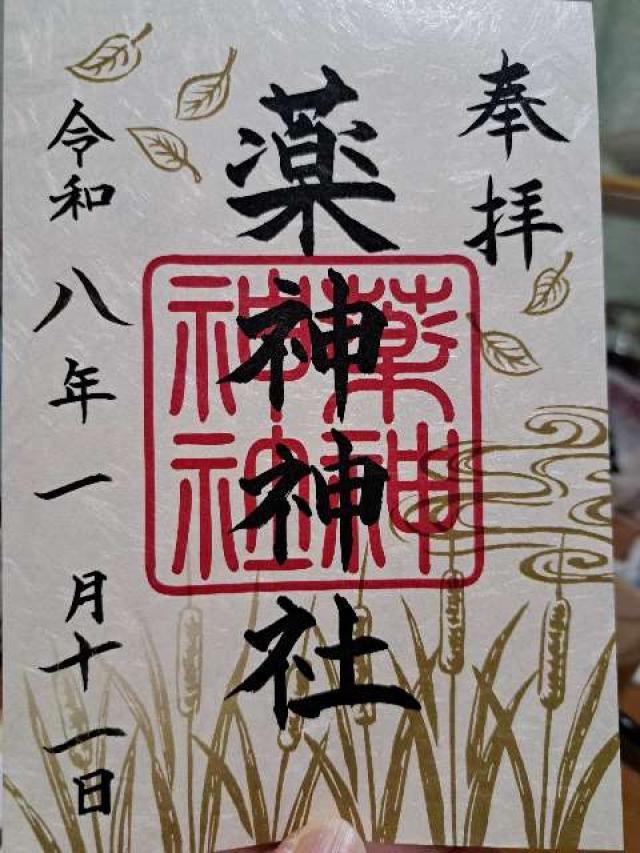 奉拝
薬神神社
薬神
神社
令和八年一月十一日